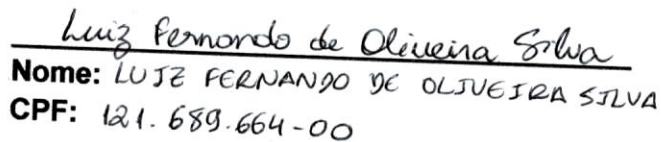 Luiz Fernando de Oliveira Silva
Nome: LUIZ FERNANDO DE OLIVEIRA SILVA
CPF: 121.689.664-00